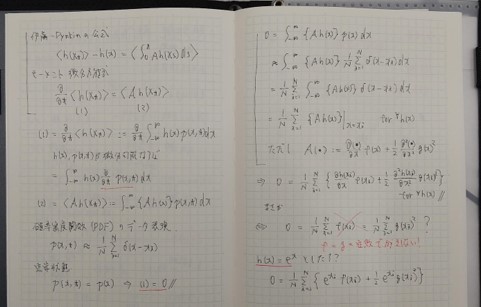 伊藤-Dynkinの公式
⟨h(X_t)⟩ - h(x) = ⟨∫_0^t Ah(X_s) ds⟩
モーメント・微分方程式
∂/∂t ⟨h(X_t)⟩ = ⟨Ah(X_t)⟩
(1) (2)
(1) = ∂/∂t ⟨h(X_t)⟩ := ∂/∂t ∫_{-∞}^{∞} h(x) p(x,t) dx
h(x), p(x,t)が微分可能なら
= ∫_{-∞}^{∞} h(x) ∂/∂t p(x,t) dx
(2) = ⟨Ah(X_t)⟩ = ∫_{-∞}^{∞} {Ah(x)} p(x,t) dx
確率密度関数 (PDF) のデータ表現
p(x,t) ≈ 1/N Σ_{i=1}^{N} δ(x-x_i)
定常状態
p(x,t) = p(x) ⇒ (1) = 0 //
0 = ∫_{-∞}^{∞} {Ah(x)} p(x) dx
≈ ∫_{-∞}^{∞} {Ah(x)} 1/N Σ_{i=1}^{N} δ(x-x_i) dx
= 1/N Σ_{i=1}^{N} ∫_{-∞}^{∞} {Ah(x)} δ(x-x_i) dx
= 1/N Σ_{i=1}^{N} {Ah(x)}|_{x=x_i} for ∀h(x)
ただし A(•) := ∂(•)/∂x f(x) + 1/2 ∂²(•)/∂x² g(x)²
⇒ 0 = 1/N Σ_{i=1}^{N} {∂h(x_i)/∂x f(x_i) + 1/2 ∂²h(x_i)/∂x² g(x_i)²}
for ∀h(x) //
⇔ 0 = 1/N Σ_{i=1}^{N} f(x_i) = 1/N Σ_{i=1}^{N} g(x_i)² ?
h(x) = e^x としたら?
0 = 1/N Σ_{i=1}^{N} {e^{x_i} f(x_i) + 1/2 e^{x_i} g(x_i)²}